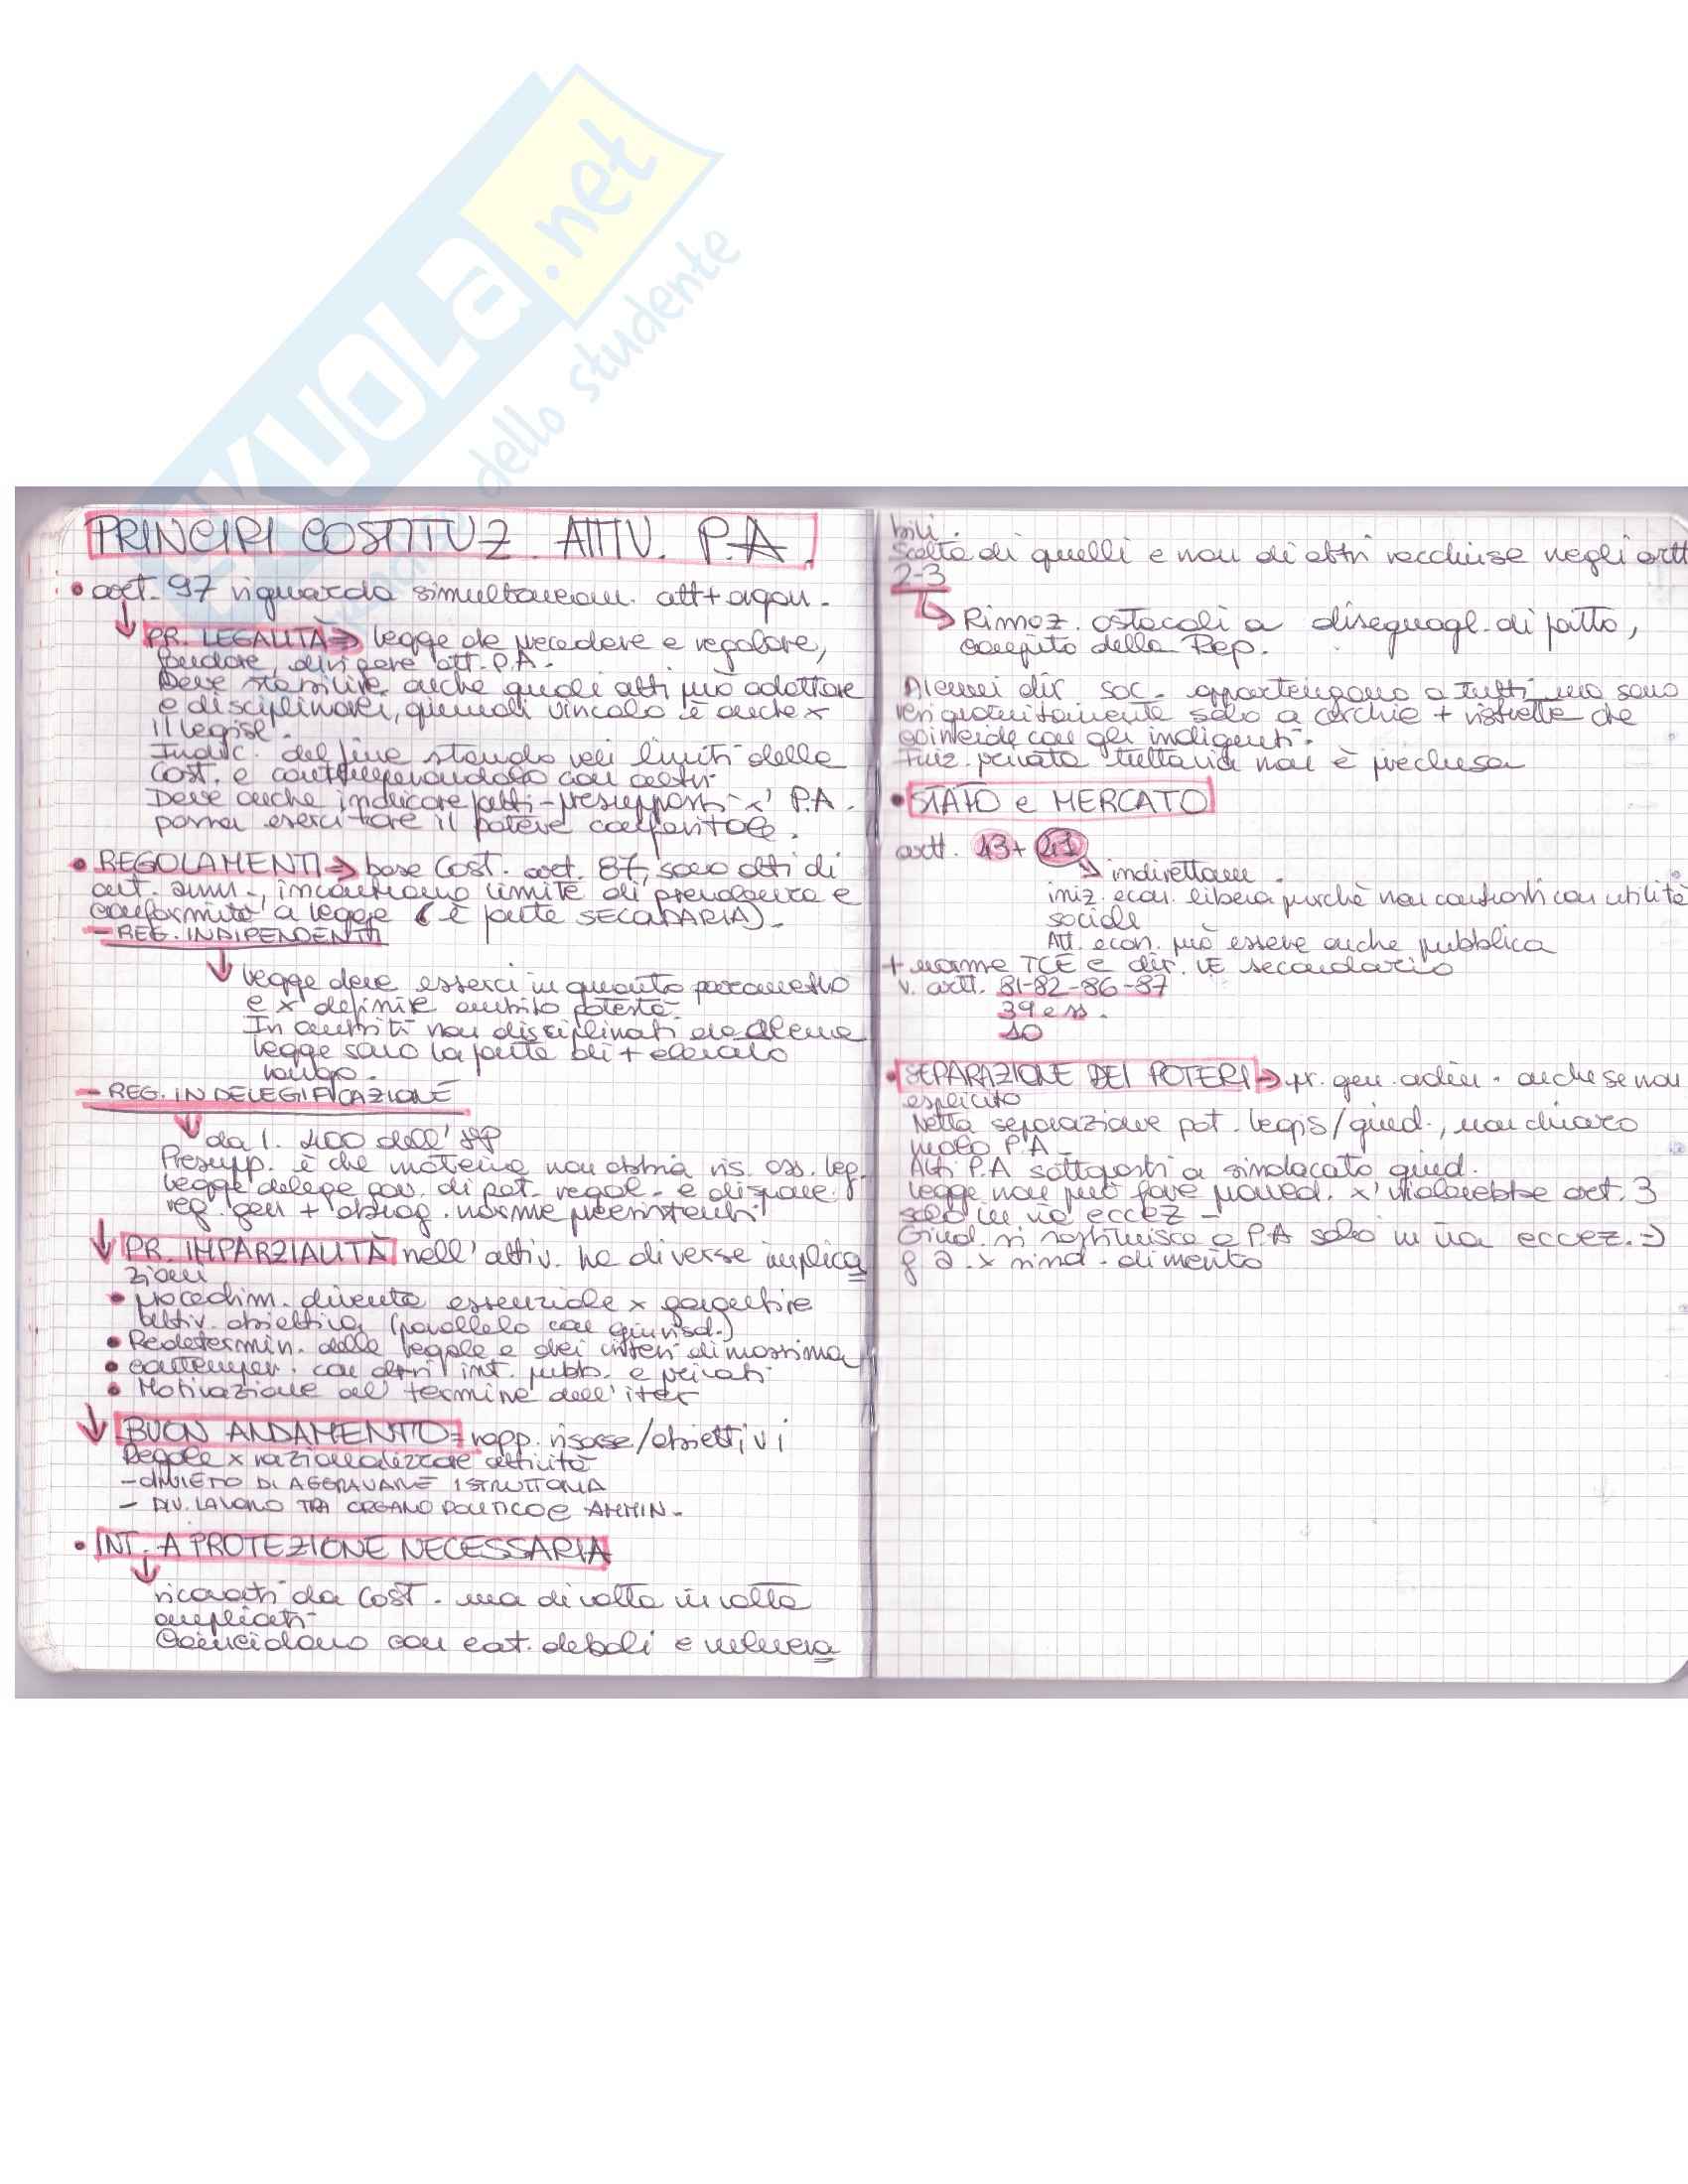 SKUOLA.net
dello studente
PRINCIPI COSTITUZ. ATTIV. P.A.
• art. 97 riguarda simultaneam. att + organ.
PR. LEGALITÀ => legge de precedere e regolare,
fondare, dirigere att. P.A.
Deve stabilire anche quali atti può adottare
e disciplinarli, quindi vincolo è anche x
il legisl.
Indic. del fine stando nei limiti della
Cost. e contemperandolo con altri
Deve anche indicare fatti-presupposti x' P.A.
possa esercitare il potere conferitole.
• REGOLAMENTI => base Cost. art. 87, sono atti di
aut. amm., incontrano limite di prevalenza e
conformità a legge (è fonte SECONDARIA).
- REG. INDIPENDENTI
legge deve esserci in quanto parametro
e x definire ambito potestà.
In ambiti non disciplinati da alcuna
legge sono la fonte di + elevato
rango.
- REG. IN DELEGIFICAZIONE
da l. 400 dell'88
Presupp. è che materia non abbia ris. ass. leg.
legge delega gov. di pot. regol. e dispone
reg. gen + abrog. norme preesistenti
PR. IMPARZIALITÀ nell'attiv. ha diverse implica
zioni
• procedim. diventa essenziale x garantire
attiv. obiettiva (parallelo con giurisd.)
• Predetermin. delle regole e dei criteri di massima
• contemper. con altri int. pubb. e privati
• Motivazione al termine dell'iter
BUON ANDAMENTO = rapp. risorse/obiettivi
Regole x razionalizzare attività
- DIVIETO DI AGGRAVARE ISTRUTTORIA
- DIV. LAVORO TRA ORGANO POLITICO E AMMIN.
• INT. A PROTEZIONE NECESSARIA
ricavati da Cost. ma di volta in volta
ampliati
Coincidono con cat. deboli e vulnera
bili.
Scelta di quelli e non di altri racchiuse negli artt
2-3
Rimoz. ostacoli a diseguagl. di fatto,
compito della Rep.
Alcuni dir soc. appartengono a tutti ma sono
resi gratuitamente solo a cerchie + ristrette che
coincide con gli indigenti.
Funz. privata tuttavia non è preclusa
• STATO e MERCATO
artt. 43 + 41
indirettam.
iniz. econ. libera purché non contrasti con utilità
sociale
Att. econ. può essere anche pubblica
+ norme TCE e dir. UE secondario
v. artt. 81-82-86-87
39 e ss.
10
• SEPARAZIONE DEI POTERI -> pr. gen. ordin. anche se non
esplicito
Netta separazione pot. legis/giud., non chiaro
ruolo P.A.
Atti P.A sottoposti a sindacato giud.
legge non può fare provved. x' violerebbe art. 3
solo in via eccez -
Giud. si sostituisce a P.A solo in via eccez. ->
g. a. x sind. di merito